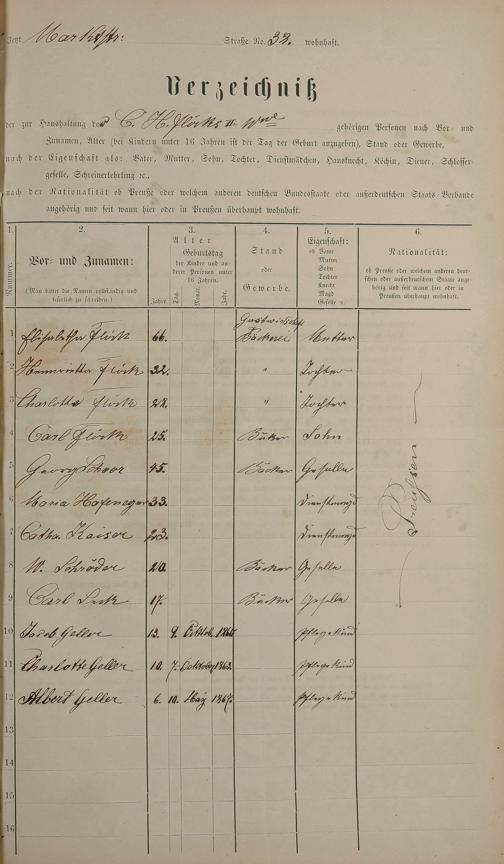 Jetzt Marktstr: Straße No. 32. wohnhaft.
Verzeichniß
der zur Haushaltung der C. H. Flöcks II. Wwe gehörigen Personen nach Vor- und
Zunamen, Alter (bei Kindern unter 16 Jahren ist der Tag der Geburt anzugeben), Stand oder Gewerbe,
nach der Eigenschaft als: Vater, Mutter, Sohn, Tochter, Dienstmädchen, Hausknecht, Köchin, Diener, Schlosser-
geselle, Schreinerlehrling ꝛc.,
nach der Nationalität ob Preuße oder welchem anderen deutschen Bundesstaate oder außerdeutschen Staats-Verbande
angehörig und seit wann hier oder in Preußen überhaupt wohnhaft.
1. 2. 3. 4. 5. 6.
Nummer.
Vor- und Zunamen:
(Man bittet die Namen vollständig und
leserlich zu schreiben.)
Alter
Geburtstag
der Kinder und an-
deren Personen unter
16 Jahren.
Jahre. Tag. Monat. Jahr.
Stand
oder
Gewerbe.
Eigenschaft:
ob Vater
Mutter
Sohn
Tochter
Knecht
Magd
Geselle u.
Nationalität:
ob Preuße oder welchem anderen deut-
schen oder außerdeutschen Staate ange-
hörig und seit wann hier oder in
Preußen überhaupt wohnhaft.
1 Elisabetha Flöck 66. Gastwirtschft Bäckerei Mutter
2 Hennrietta Flöck 32. " Tochter
3 Charlotte Flöck 27. " Tochter
4 Carl Flöck 25. Bäker Sohn
5 Georg 45. Bäcker Geselle
6 Maria 33. Dienstmagd
7 Catha. Kaiser 23. Dienstmagd
8 W. Schröder 20. Bäcker Geselle
9 Carl 17. Bäcker Geselle
10 Jacob Geller 13. 9. Oktob. Pflegekind
11 Charlotte Geller 10. 7. Oktober 1862 Pflegekind
12 Albert Geller 6. 10. May 1867. Pflegekind
13
14
15
16
Preußen